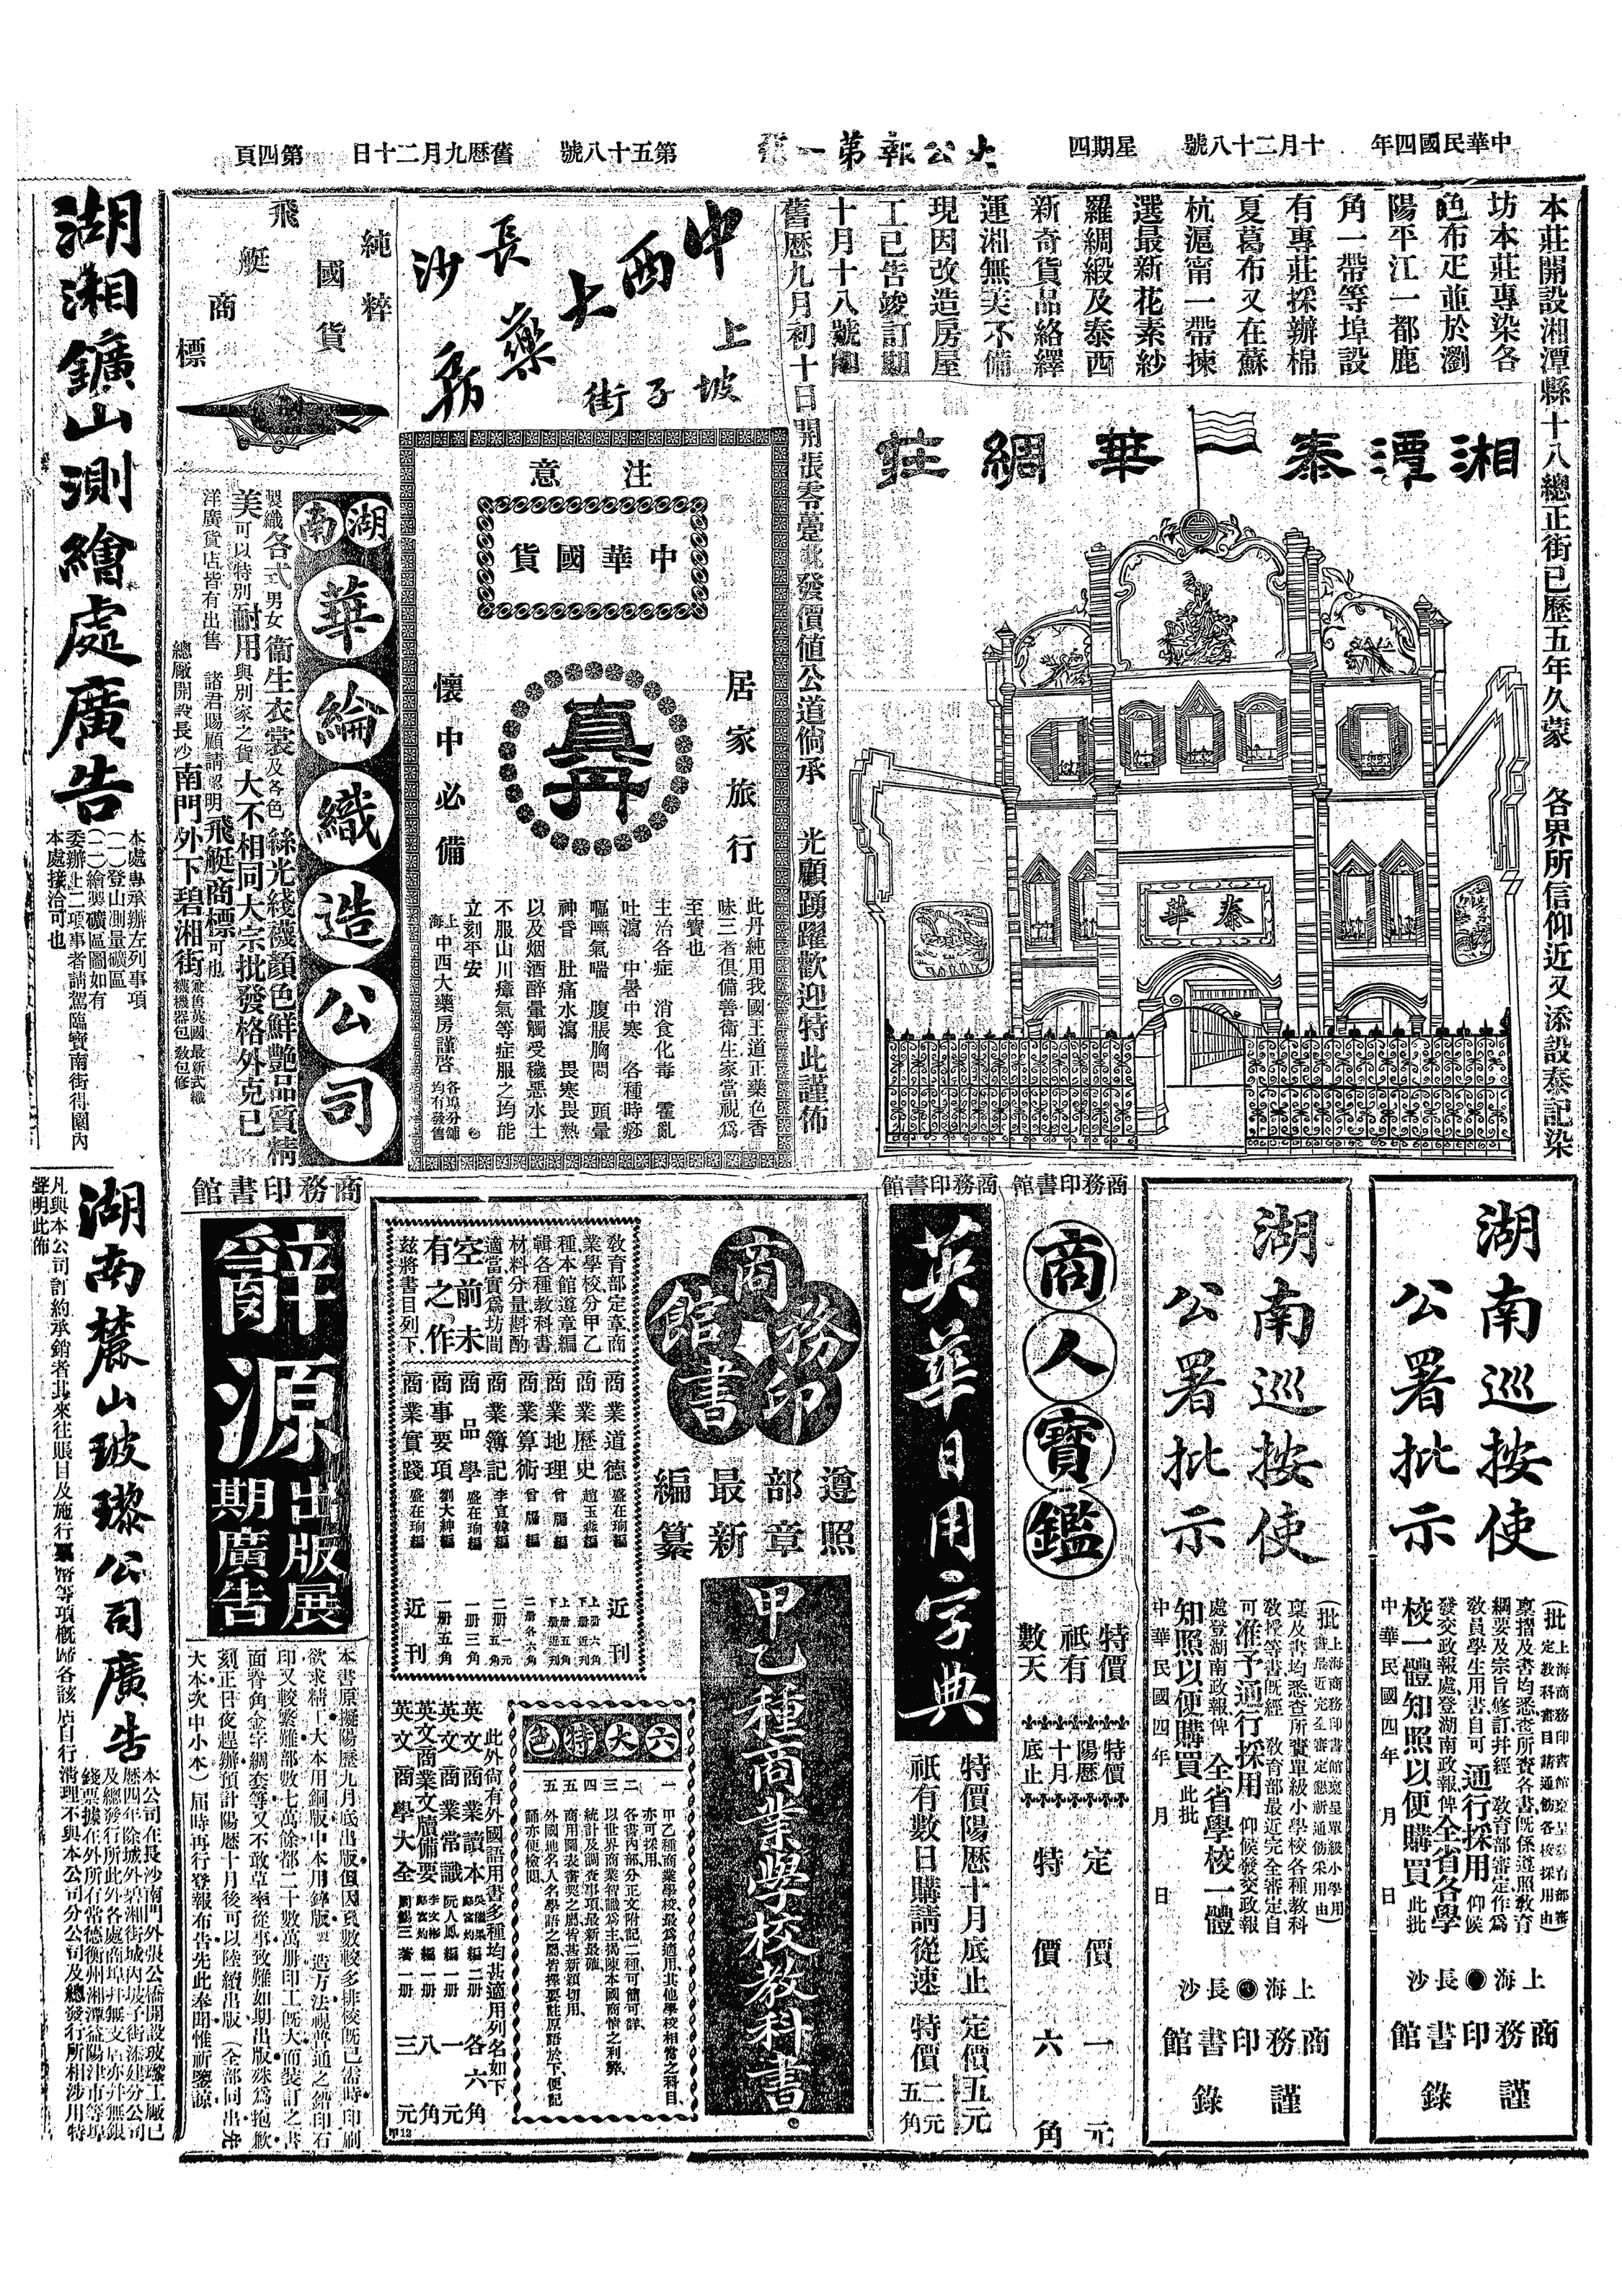 中華民國四年 十月二十八號 星期四 大公報第一張 第五十八號 舊歷九月二十日 第四頁
本莊開設湘潭縣十八總正街已歷五年久蒙 各界所信仰近又添設泰記染
坊本莊專染各
色布疋並於瀏
陽平江一都鹿
角一帶等埠設
有專莊採辦棉
夏葛布又在蘇
杭滬甯一帶揀
選最新花素紗
羅綢緞及泰西
新奇貨品絡繹
運湘無美不備
現因改造房屋
工已告竣訂期
十月十八號
舊歷九月初十日開張零躉批發價値公道倘承 光顧踴躍歡迎特此謹佈
湘潭泰華綢莊
泰華
中西大藥房
長沙
上坡子街
注意
中華國貨
居家旅行
真丹
懷中必備
此丹純用我國王道正藥色香
味三者俱備善衛生家當視爲
至寶也
主治各症 消食化毒 霍亂
吐瀉 中暑中寒 各種時痧
嘔噁氣喘 腹脹胸悶 頭暈
神昏 肚痛水瀉 畏寒畏熱
以及烟酒醉暈觸受穢惡水土
不服山川瘴氣等症服之均能
立刻平安
上海中西大藥房謹啓 各埠分舖均有發售
純粹
國貨
飛艇商標
湖南
華綸織造公司
製織各式男女衞生衣裳及各色絲光綫襪顔色鮮艷品質精
美可以特別耐用與別家之貨大不相同大宗批發格外克已
洋廣貨店皆有出售 諸君賜顧請認明飛艇商標可也
總廠開設長沙南門外下碧湘街 兼售英國最新式織襪機器包教包修
湖南巡按使
公署批示
(批上海商務印書館稟呈教育部審
定教科書目請通飭各校採用由)
稟摺及書均悉查所查各書既係遵照教育
綱要及宗旨修訂并經 教育部審定作爲
教員學生用書自可通行採用仰候
發交政報處登湖南政報俾全省各學
校一體知照以便購買此批
中華民國四年 月 日
上海 長沙
商務印書館
謹錄
湖南巡按使
公署批示
(批上海商務印書館稟呈單級小學用
書最近完全審定懇新通飭采用由)
稟及書均悉查所賫單級小學校各種教科
教授等書既經 教育部最近完全審定自
可准予通行採用 仰候發交政報
處登湖南政報俾 全省學校一體
知照以便購買此批
中華民國四年 月 日
上海 長沙
商務印書館
謹錄
商務印書館
商人寶鑑
特價
祇有
數天
特價
陽歷
十月
底止
定價一元
特價六角
商務印書館
英華日用字典
特價陽歷十月底止
祇有數日購請從速
定價五元
特價二元五角
商務印書館
遵照
部章
最新
編纂
甲乙種商業學校教科書
教育部定章商
業學校分甲乙
種本館遵章編
輯各種教科書
材料分量斟酌
適當實爲坊間
空前未
有之作
茲將書目列下
商業道德 盛在珦編 近刊
商業歷史 趙玉森編 上册六角 下册近刊
商業地理 曾膺編 上册五角 下册近刊
商業算術 曾膺編 二册各六角
商業簿記 李宣韓編 二册一元五角
商品學 盛在珦編 一册三角
商事要項 劉大紳編 一册五角
商業實踐 盛在珦編 近刊
六大特色
一 甲乙種商業學校最爲適用其他學校相當之科目
亦可採用
二 各書內部分正文附記二種可簡可詳
三 以世界商業智識爲主揭陳本國商情之利弊
四 統計及調查事項最新最確
五 商用圖表書契之屬皆甚新穎切用
五 外國地名人名學語之屬皆擇要註原語於下便記
誦亦便檢閱
此外尙有外國語用書多種均甚適用列名如下
英文商業讀本 二册 各六角
英文商業常識 阮人鳳編 一册 一元
英文商業文牘備要 一册 八角
英文商學大全 一册 三元
商務印書館
辭源
出版展
期廣告
本書原擬陽歷九月底出版但因頁數較多排校旣已需時印刷
欲求精工大本用銅版中本用鋅版製造方法視普通之鉛印石
印又較繁難部數七萬餘都二十數萬册印工旣大而裝訂之書
面脊角金字綢套等又不敢草率從事致難如期出版殊爲抱歉
刻正日夜趕辦預計陽歷十月後可以陸續出版(全部同出先
大本次中小本)屆時再行登報布告先此奉聞惟祈鑒諒
湖湘鑛山測繪處廣告
本處專承辦左列事項
(一)登山測量礦區
(二)繪製礦區圖如有
委辦上二項事者請駕臨寶南街得園內
本處接洽可也
湖南麓山玻瓈公司廣告
本公司在長沙南門外張公橋開設玻瓈工廠已
歷四年除城外碧湘街城內坡子街添建分公司
及總發行所此外各處商埠并無支店亦并無銀
錢票據在外所有常德衡州湘潭益陽津市等埠
凡與本公司訂約承銷者此來往賬目及施行票幣等項概歸各該店自行清理不與本公司分公司及總發行所相涉用特
聲明此佈